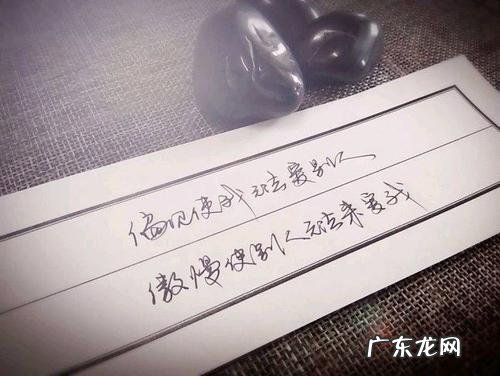 偏见使我无法爱别人
傲慢使别人无法来爱我
广东龙网